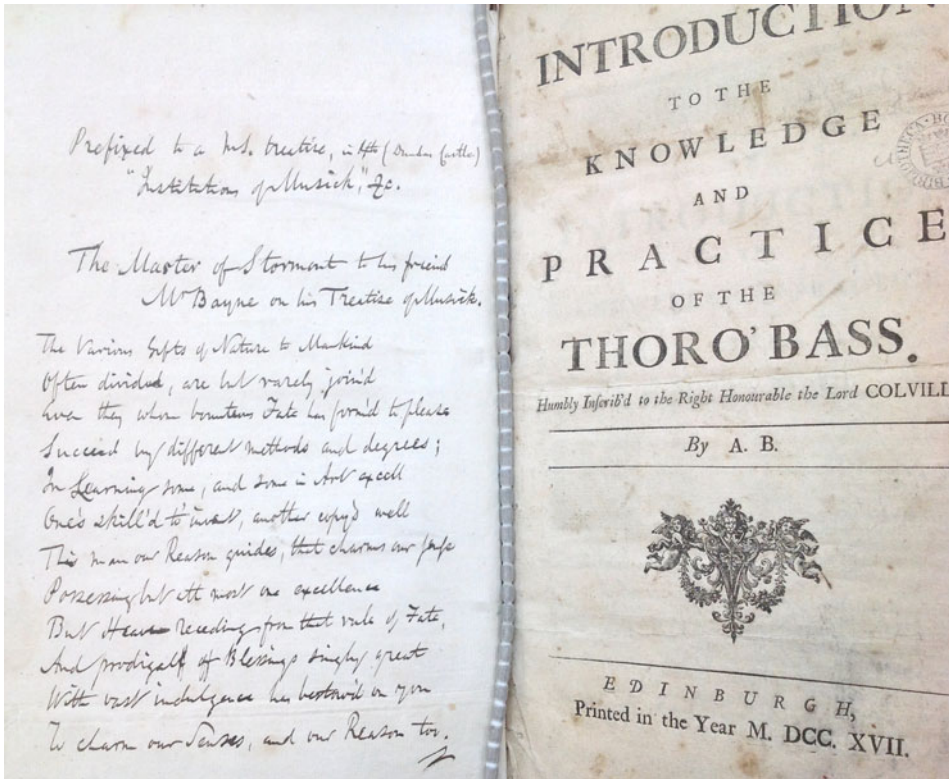 Prefixed to a MS. treatise, in 4to (Dundas Castle)
"Institutions of Musick," &c.
The Master of Stormont to his friend
Mr Bayne on his Treatise of Musick.
The Various Gifts of Nature to Mankind
Often divided, are but rarely join'd
Even they whom bounteous Fate has form'd to please
Succeed by different methods and degrees;
In Learning some, and some in Art excell
One's skill'd to invent, another copy's well
This man our Reason guides, that charms our
Possessing but att most one excellence
But Heaven receding from that rule of Fate,
And prodigall of Blessings singly great
With vast indulgence has bestow'd on you
To charm our Senses, and our Reason too.
INTRODUCTION
TO THE
KNOWLEDGE
AND
PRACTICE
OF THE
THORO' BASS.
Humbly Inscrib'd to the Right Honourable the Lord COLVILL
By A. B.
EDINBURGH,
Printed in the Year M. DCC. XVII.